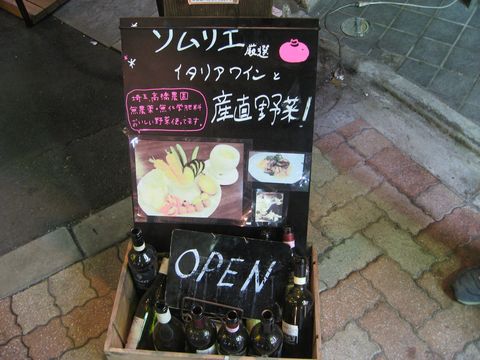 ソムリエ厳選
イタリアワインと
産直野菜!
埼玉高橋農園
無農薬・無化学肥料
おいしい野菜使ってます
OPEN